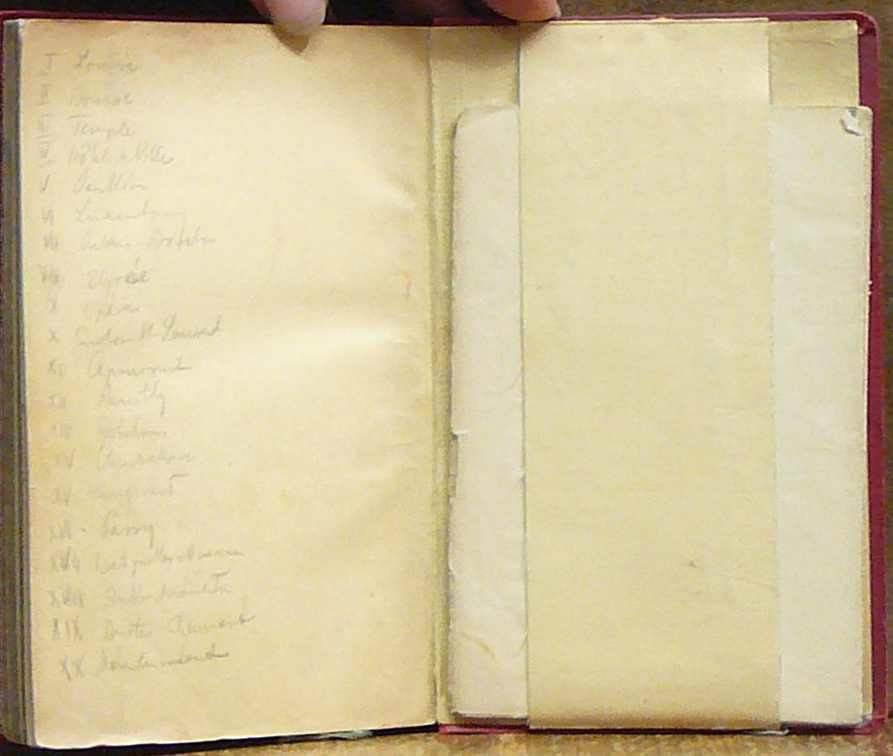 I Louvre
II Bourse
III Temple
IV Hotel de Ville
V Panthéon
VI Luxembourg
VII Palais Bourbon
VIII Elysée
X Opéra
X Enclos St Laurent
XI
XII Reuilly
XIII Gobelins
XIV Observatoire
XV Vaugirard
XVI - Passy
XVII Batignolles Monceau
XVIII Butte Montmartre
XIX Buttes Chaumont
XX Menilmontant